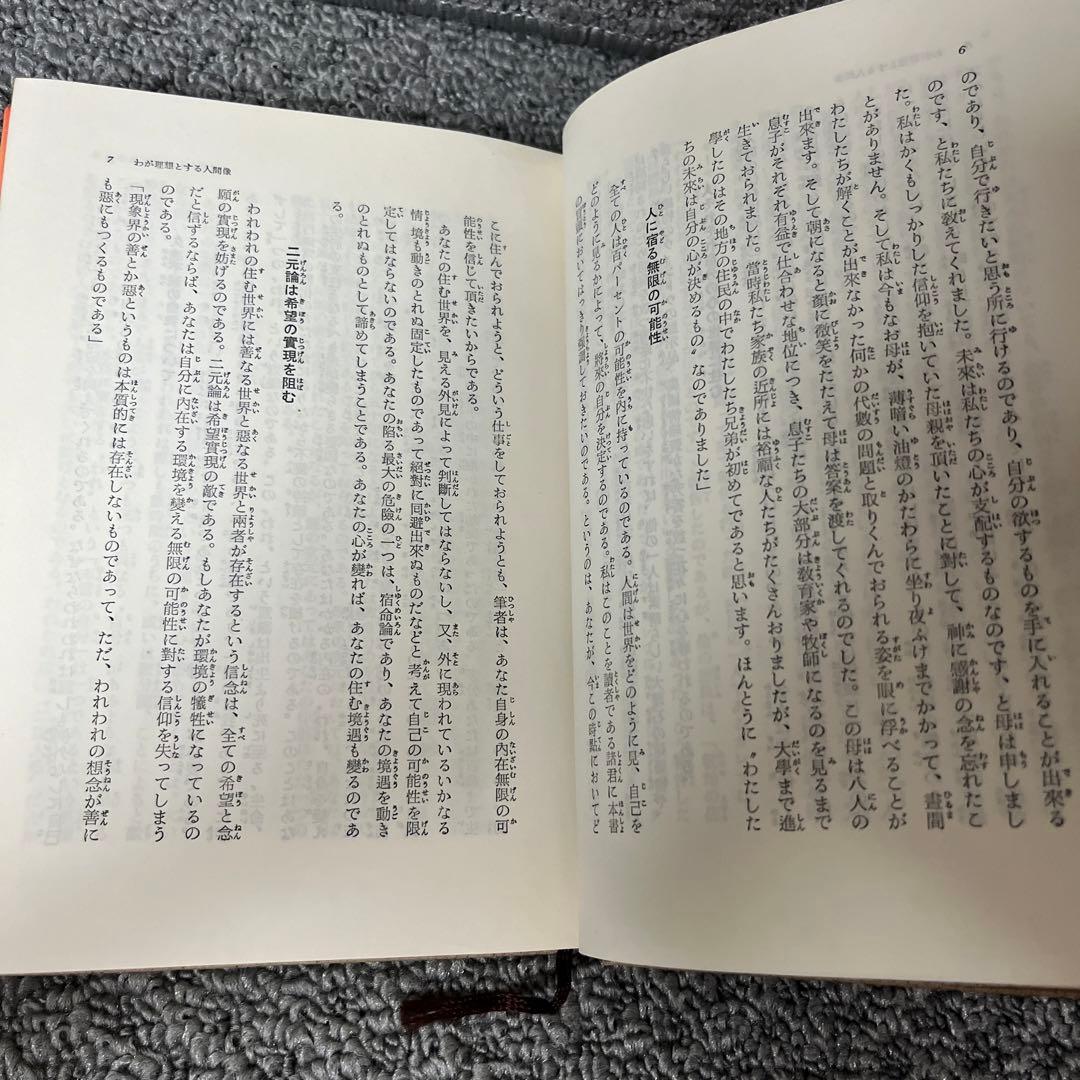 6
のであり、自分で行きたいと思う所に行けるのであり、自分の欲するものを手に入れることが出來る
のです、と私たちに敎えてくれました。未來は私たちの心が支配するものなのです、と母は申しまし
た。私はかくもしっかりした信仰を抱いていた母親を頂いたことに對して、神に感謝の念を忘れたこ
とがありません。そして私は今もなお母が、薄暗い油燈のかたわらに坐り夜ふけまでかかって、晝間
わたしたちが解くことが出來なかった何かの代數の問題と取りくんでおられる姿を眼に浮べることが
出來ます。そして朝になると顏に微笑をたたえて母は答案を渡してくれるのでした。この母は八人の
息子がそれぞれ有益で仕合わせな地位につき、息子たちの大部分は敎育家や牧師になるのを見るまで
生きておられました。當時私たち家族の近所には裕福な人たちがたくさんおりましたが、大學まで進
學したのはその地方の住民の中でわたしたち兄弟が初めてであると思います。ほんとうに〝わたした
ちの未來は自分の心が決めるもの〟なのでありました」
人に宿る無限の可能性
全ての人は百パーセントの可能性を內に持っているのである。人間は世界をどのように見、自己を
どのように見るかによって、將來の自分を決定するのである。私はこのことを讀者である諸君に本書
の眼においてはっきり强調しておきたいのである。というのは、あなたが、今この時點においてど
7 わが理想とする人間像
こに住んでおられようと、どういう仕事をしておられようとも、筆者は、あなた自身の內在無限の可
能性を信じて頂きたいからである。
あなたの住む世界を、見える外見によって判斷してはならないし、又、外に現われているいかなる
情境も動きのとれぬ固定したものであって絕對に回避出來ぬものだなどと考えて自己の可能性を限
定してはならないのである。あなたの陷る最大の危險の一つは、宿命論であり、あなたの境遇を動き
のとれぬものとして諦めてしまうことである。あなたの心が變れば、あなたの住む境遇も變るのであ
る。
二元論は希望の實現を阻む
われわれの住む世界には善なる世界と惡なる世界と兩者が存在するという信念は、全ての希望と念
願の實現を妨げるのである。二元論は希望實現の敵である。もしあなたが環境の犠牲になっているの
だと信ずるならば、あなたは自分に內在する環境を變える無限の可能性に對する信仰を失ってしまう
のである。
「現象界の善とか惡というものは本質的には存在しないものであって、ただ、われわれの想念が善に
も惡にもつくるものである」